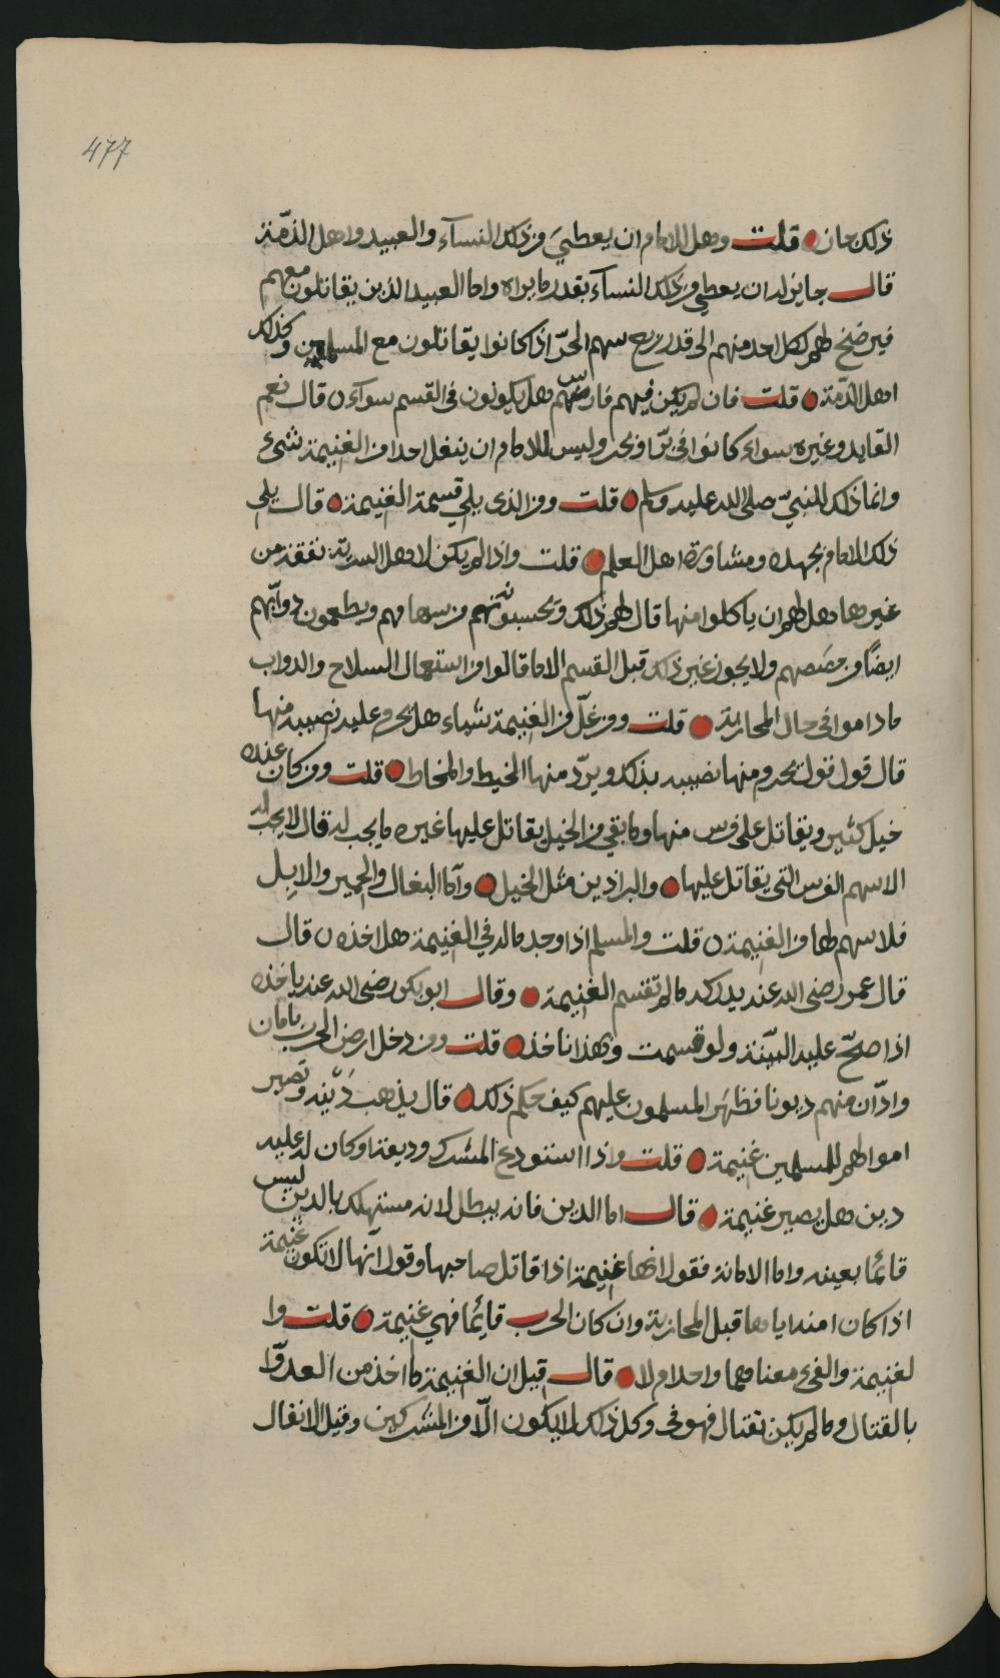 477
ذلك جاز قلت وهل للامام ان يعطي من ذلك النسآء والعبيد واهل الذمّة
قال جايز له ان يعطي من ذلك النسآء بقدر ما يراه واما العبيد الذين يقاتلون معهم
فيرضخ لهم لكل احد منهم الى قدر ربع سهم الحرّ اذا كانوا يقاتلون مع المسلمين وكذلك
اهل الذّمة قلت فان لم يكن فيهم فارس منهم وهل يكونون في القسم سوآء قال نعم
القايد وغيره سواء كانوا في برّ او بحر وليس للامام ان ينفل احدا من الغنيمة شيء
وانما ذلك للنبيّ صلى الله عليه وسلم قلت ومن الذى يلي قسمة الغنيمة قال يلي
ذلك الامام بجهده ومشاورة اهل العلم قلت واذا لم يكن لاهل السرية نفقة من
غيرها هل لهم ان ياكلوا منها قال لهم ذلك ويحسبونهم من سهامهم ويطعمون دوآبّهم
ايضًا من حصصهم ولا يجوز غير ذلك قبل القسم الا ما قالوا من استعمال السلاح والدواب
ما داموا في حال المحاربة قلت ومن غلّ من الغنيمة شياء هل يحرم عليه نصيبه منها
قال قول قول يحرم منها نصيبه بذلك ويردّ منها الخيط والمخاط قلت ومن كان عنده
خيل كثير ويقاتل على فرس منها وما بقي من الخيل يقاتل عليها غيره ما يجب له قال لا يجب له
الا سهم الفرس التي يقاتل عليها والبرادين مثل الخيل وآما البغال والحمير والابِل
فلا سهم لها من الغنيمة قلت والمسلم اذا وجد ماله في الغنيمة هل اخذه قال
قال عمر رضى الله عنه يدركه ما لم تقسم الغنيمة وقال ابو بكر رضى الله عنه ياخذه
اذا صلحّ عليه البيّنة ولو قسمت وبهذا ناخذ قلت ومن دخل ارض الحرب بامان
وادّان منهم ديونا فظهَر المسلمون عليهم كيف حكم ذلك قال يذهب دَيْنه وتصير
اموالهم للمسلمين غنيمة قلت واذا استودع المشرك وديعة وكان له عليه
دين هل يصير غنيمة قال اما الدين فانه يبطل لانه مستهلك بالدين ليس
قائما بعينه واما الامانة فقول انها غنيمة اذا قاتل صاحبها وقول آنها لا تكون غنيمة
اذا كان امنه اياها قبل المحاربة وان كان الحرب قايِمًا فهي غنيمة قلت وا
لغنيمة والفيء معناهما واحد ام لا قال قيل ان الغنيمة ما اخذ من العدوّا
بالقتال وما لم يكن بقتال فهو فى وكل ذلك لا يكون الّا من المشركين وقيل الانفال